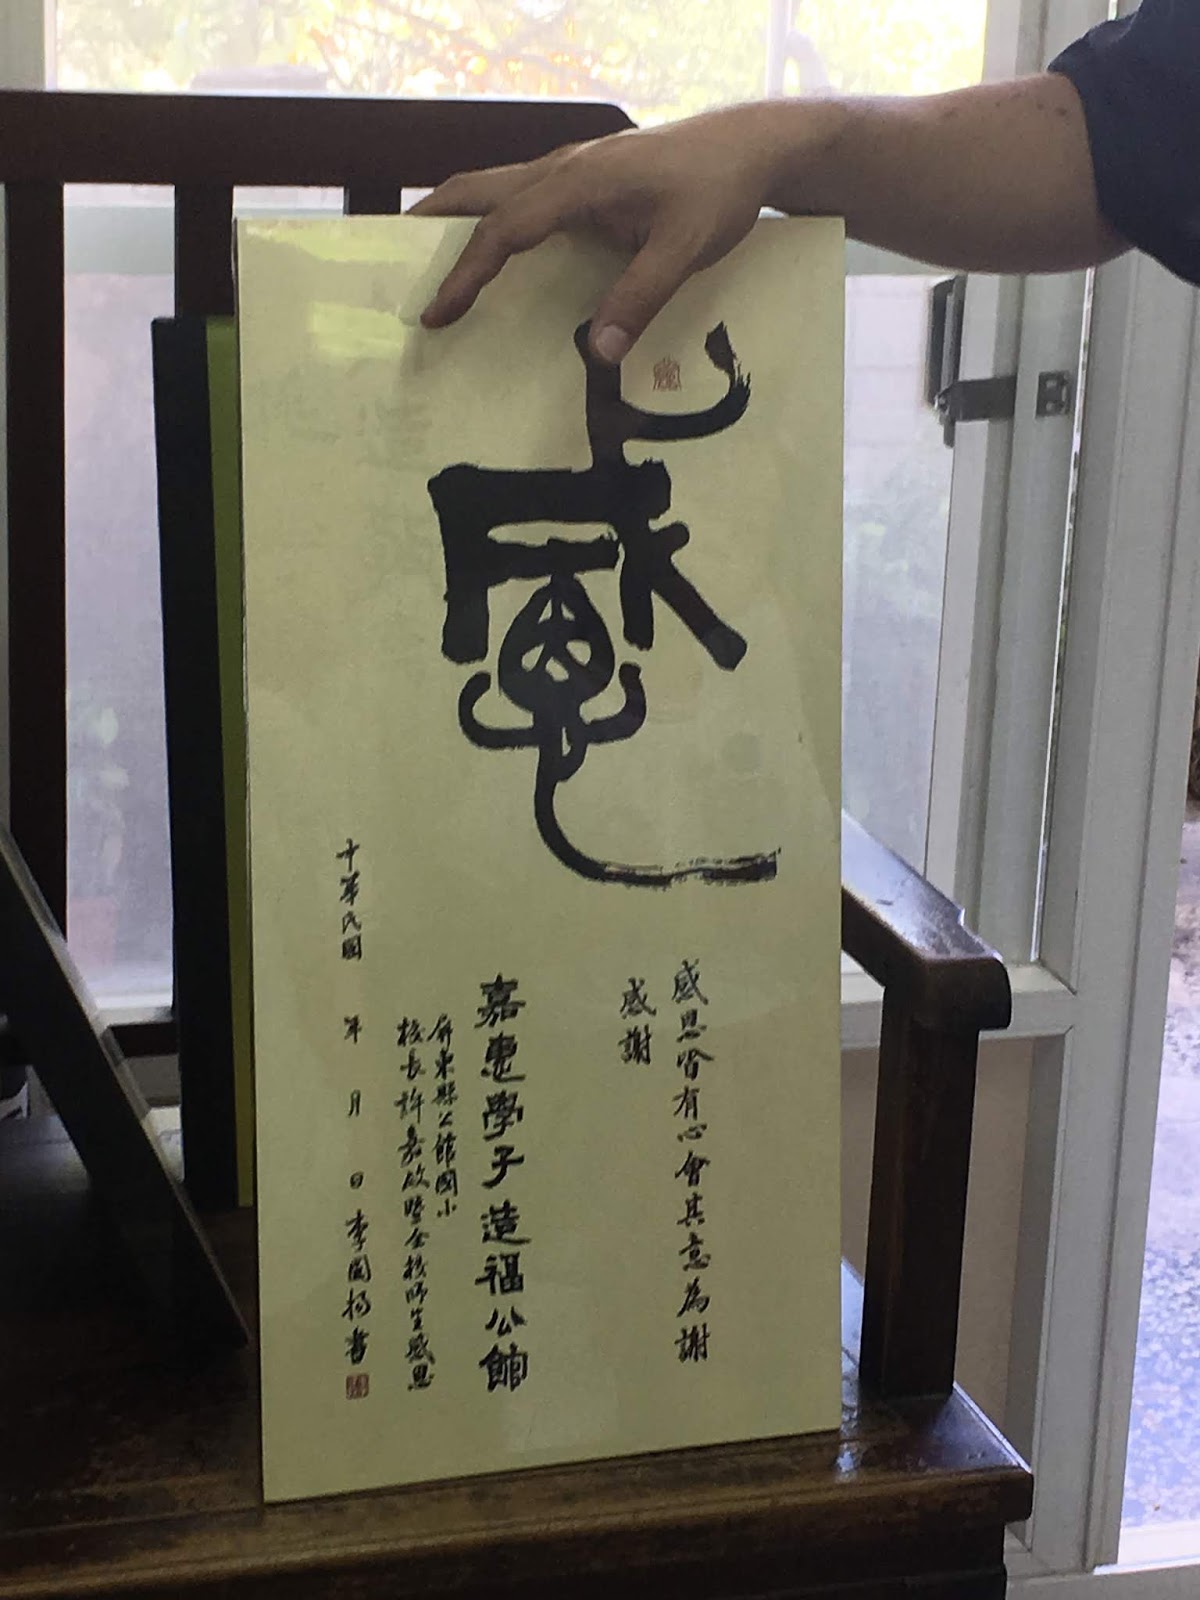 感
感恩皆有心會其意為謝
感謝
嘉惠學子造福公館
屏東縣公館國小
校長許嘉政暨全校師生感恩
中華民國 年 月 日 李國揚書